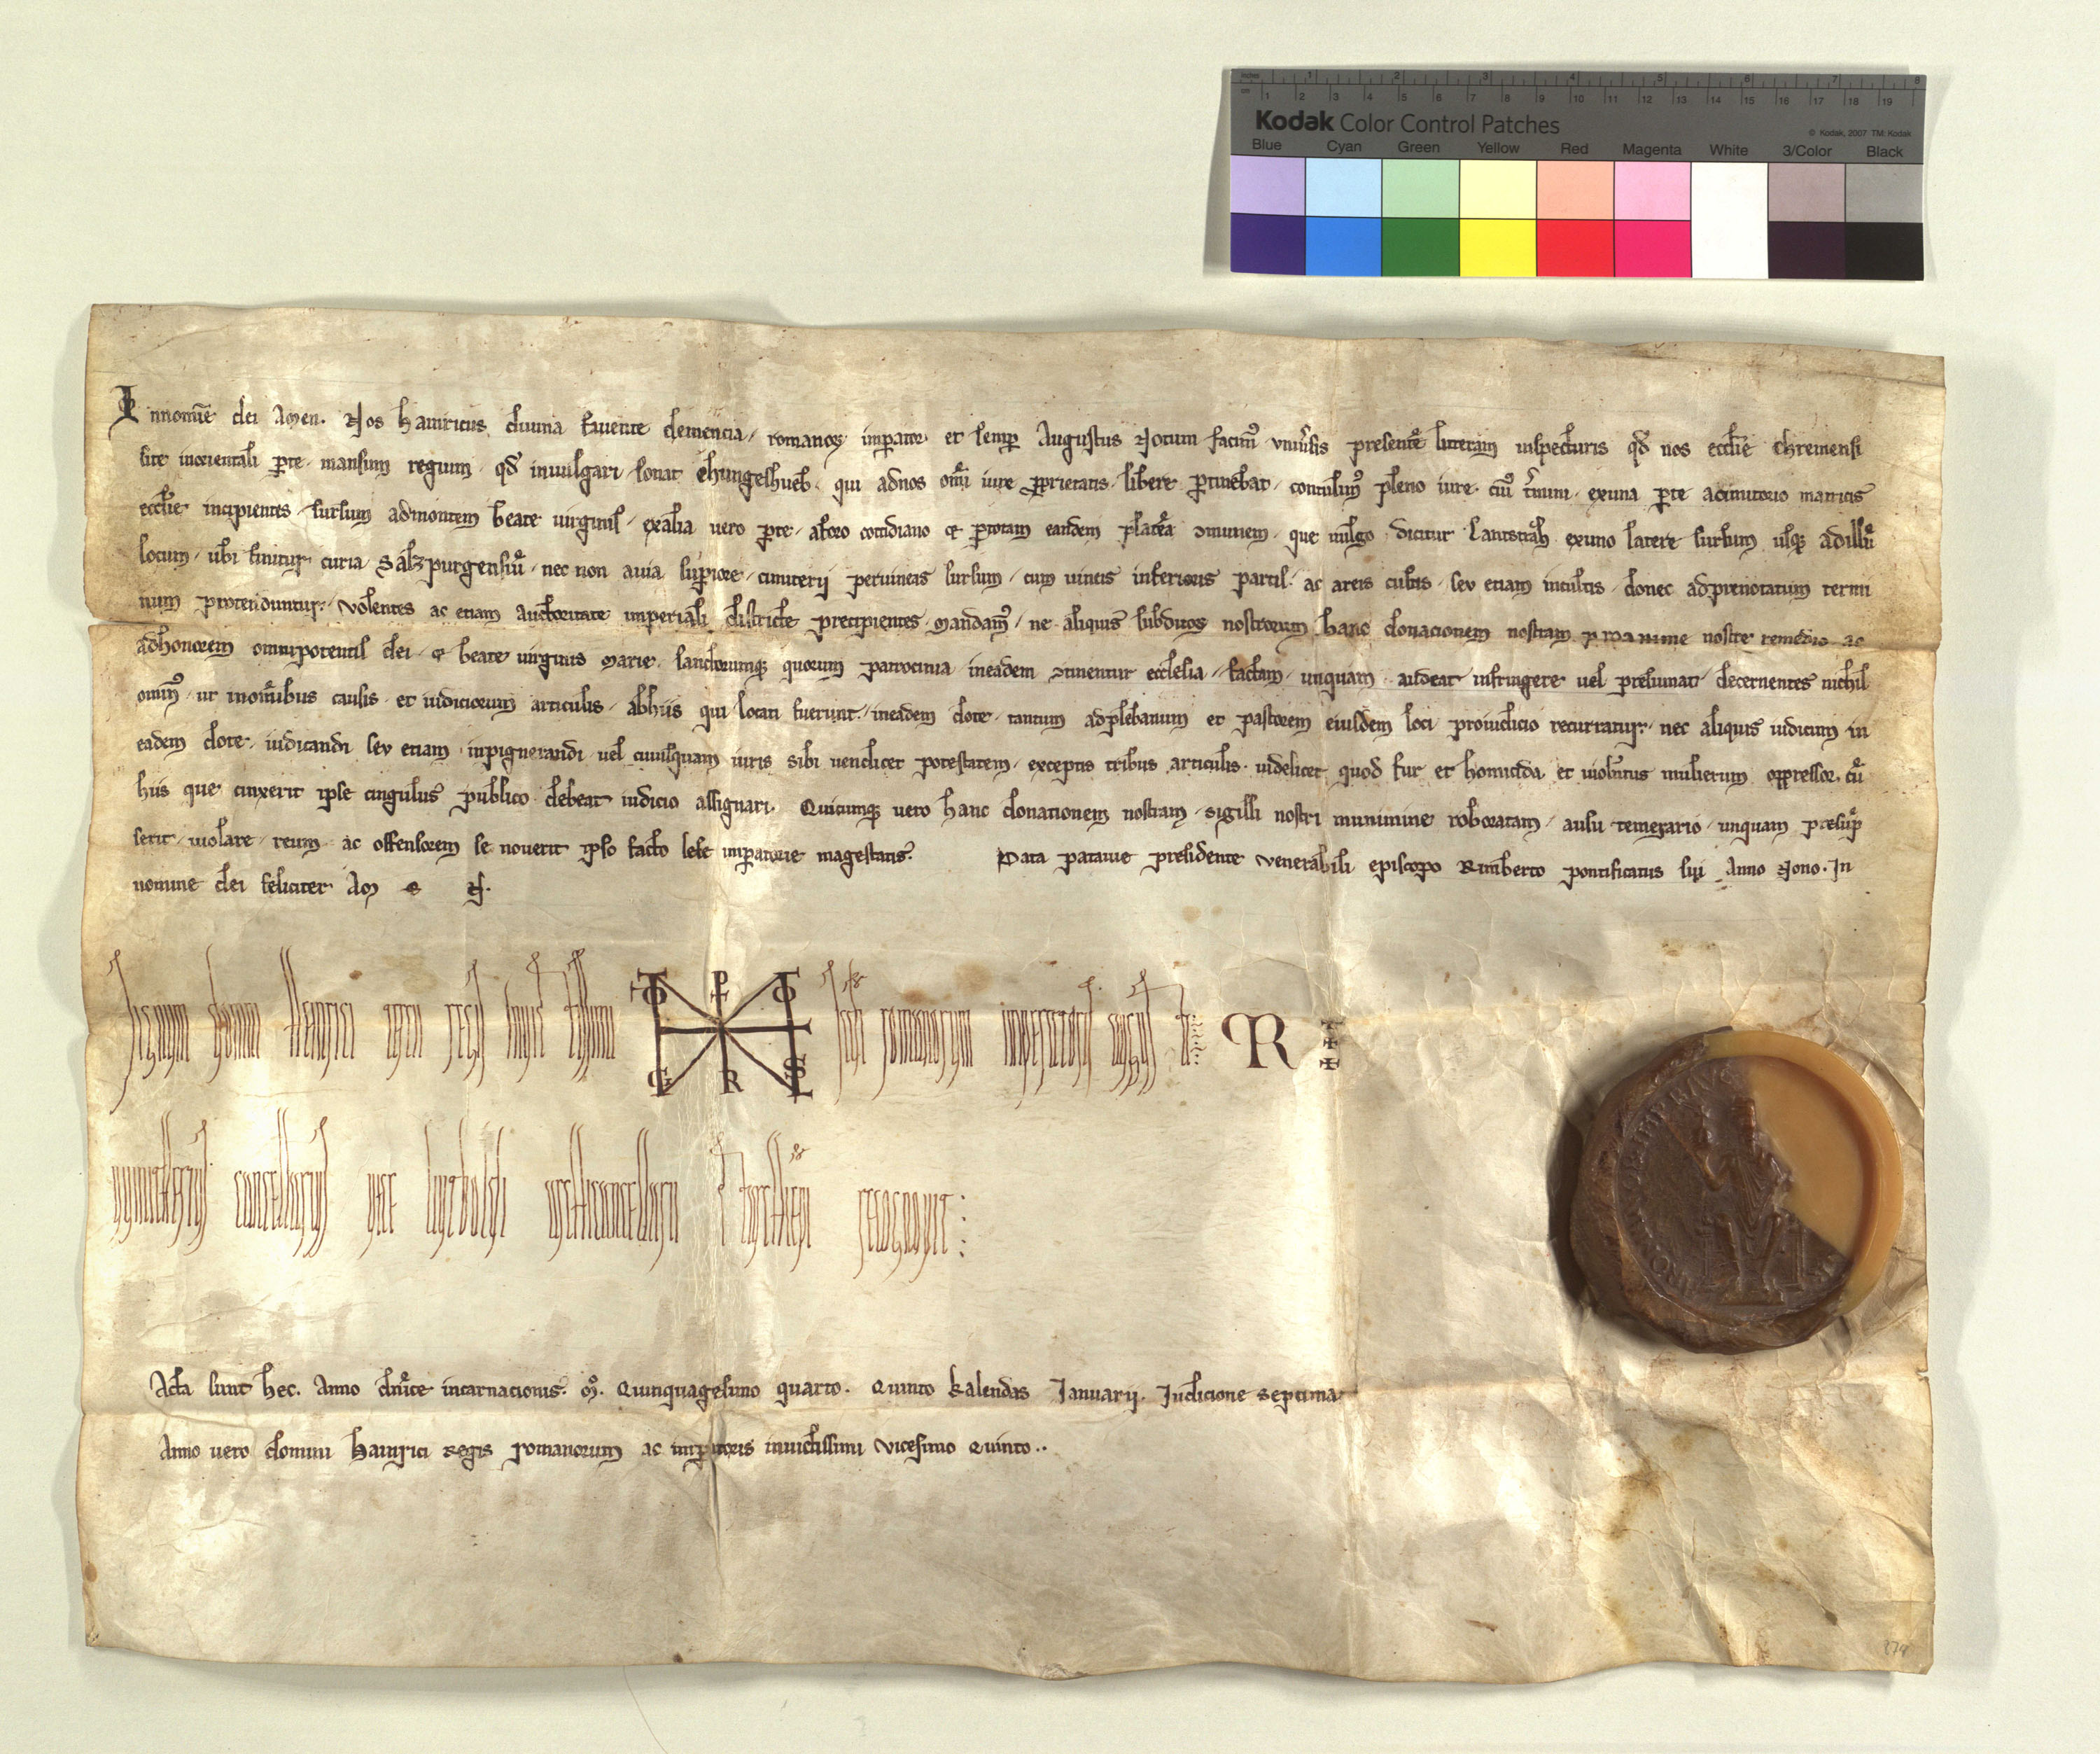 Inches 1 2 3 4 5 6 7 8
cm 1 2 3 4 5 6 7 8 9 10 11 12 13 14 15 16 17 18 19
Kodak Color Control Patches © Kodak, 2007 TM: Kodak
Blue Cyan Green Yellow Red Magenta White 3/Color Black
In nomīe dei Amen. Nos hainricus diuina fauente clemencia, romanoꝝ imꝑator et semꝑ Augustus Notum facim᷒ vniu̾sis presentē litteram inspecturis qđ nos eccľie chremensi
site in orientali ꝑte mansum regium qđ in uulgari sonat chungeshueb qui ad nos om̄i iure ꝓprietatis libere ꝑtinebat contulim᷒ pleno iure cui᷒ t̾mini ex una ꝑte a cimiterio matricis
eccľie incipientes sursum ad montem beate uirginis ex alia uero ꝑte a foro cottidiano et ꝑ totam eandem plateā ꝯmunem que uulgo dicitur Lantstrazh ex uno latere sursum usqꝫ ad illū
locum ubi finitur curia Salzpurgensiū nec non a uia supiore cimiterij per uineas sursum cum uineis inferioris partis ac areis cultis sev etiam incultis donec ad prenotatum termi
num protenduntur. Volentes ac etiam auctoritate imperiali districte precipientes mandam᷒ ne aliquis subditoꝝ nostrorum hanc donacionem nostram pro anime nostre remedio ac
ad honorem omnipotentis dei et beate uirginis marie sanctorumqꝫ quorum patrocinia in eadem ꝯtinentur ecclesia factam unquam audeat infringere uel presumat decernentes nichil
omin᷒ ut in om̄ibus causis et iudiciorum articulis ab hiis qui locati fuerunt in eadem dote tantum ad plebanum et pastorem eiusdem loci pro iudicio recurratur nec aliquis iudicum in
eadem dote iudicandi sev etiam inpignerandi uel cuiusquam iuris sibi uendicet potestatem exceptis tribus articulis videlicet quod fur et homicida et uiolentus mulierum oppressor cū
hiis que cinxerit ipse cingulus publico debeat iudicio assignari. Quicumqꝫ uero hanc donationem nostram sigilli nostri munimine roboratam ausu temerario unquam presūp
serit uiolare reum ac offensorem se nouerit ipso facto lese imꝑatorie magestatis. Data patauie presidente venerabili episcopo Rimberto pontificatus sui Anno Nono. In
nomine dei feliciter Am e N.
signum domni Heinrici tercii regis
romanorum
R
cancellarius uice archicancellarii recognouit
Acta sunt hec. Anno dn̄ice incarnacionis. M̊. Quinquagesimo quarto. Quinto kalendas Ianuarij. Indicione septima
Anno uero domini hainrici Regis romanorum ac imꝑatoris inuictissimi vicesimo Quinto..